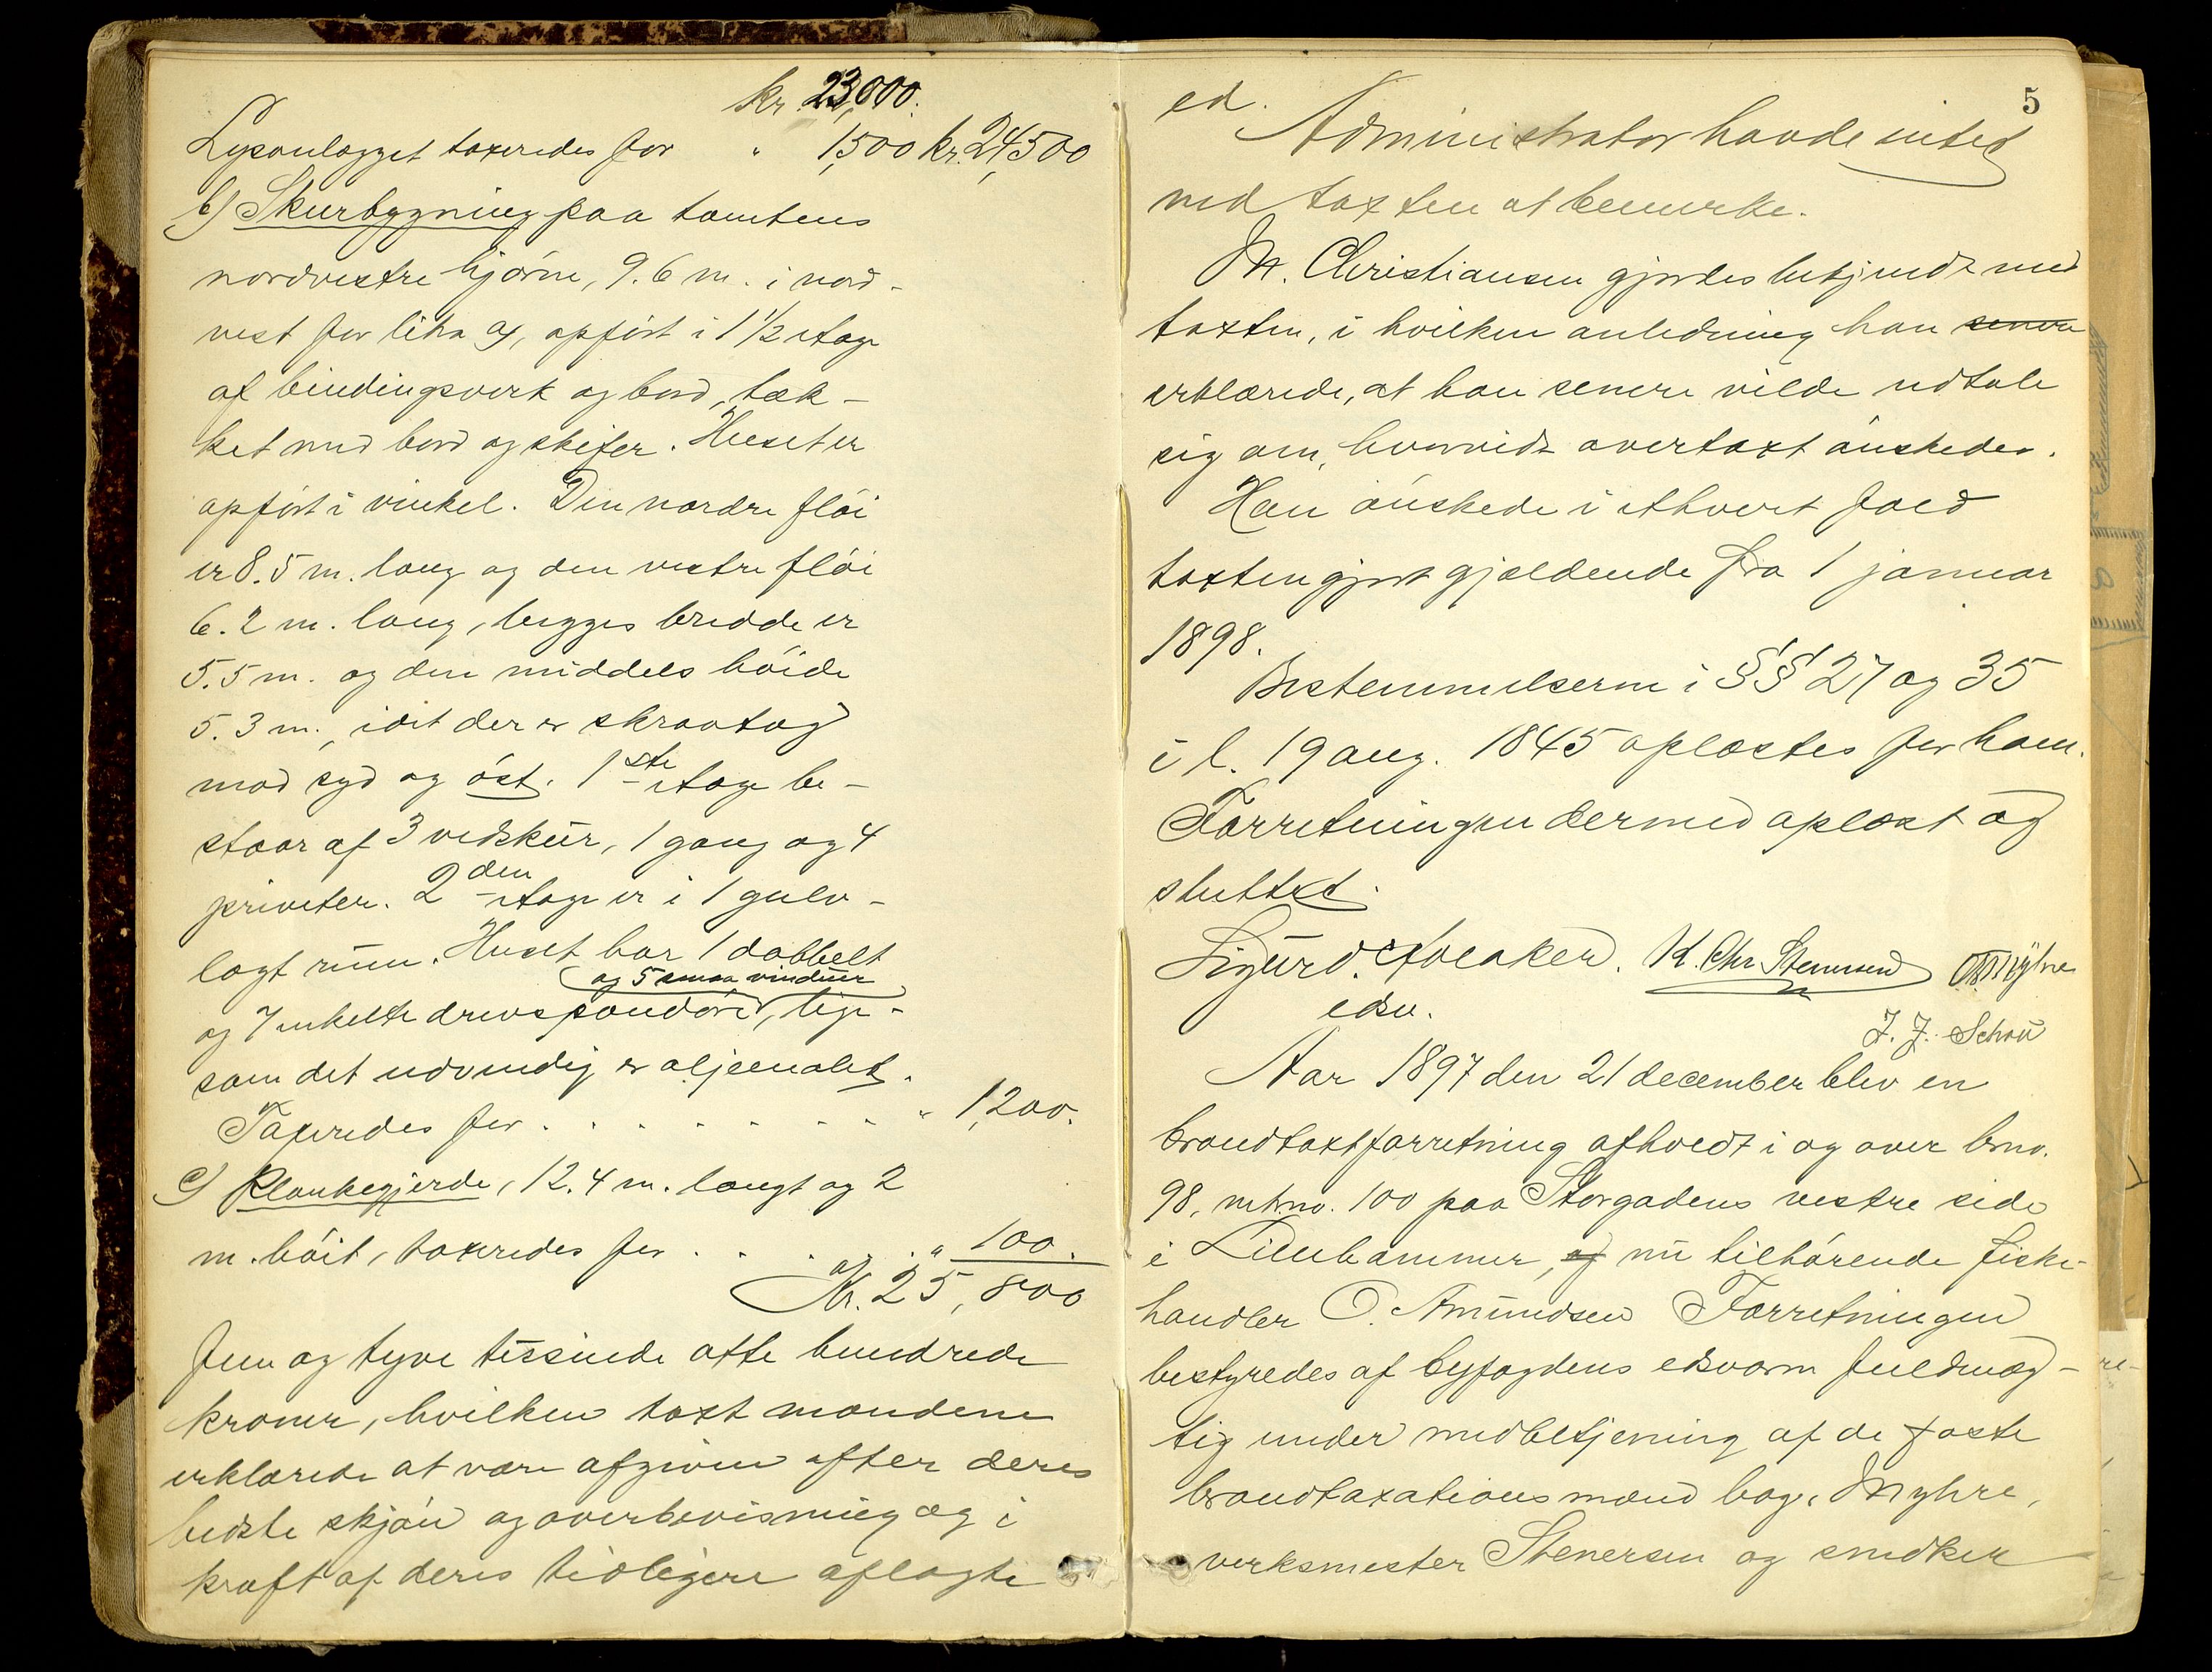 kr. 23,000.
Lysanlægget taxeredes for " 1,500 kr. 24,500
b) Skurbygning paa tomtens
nordvestre hjørne, 9.6 m. i nord-
vest for litra a, opført i 1 1/2 etage
af bindingsverk og bord, tæk-
ket med bord og skifer. Huset er
opført i vinkel. Den nordre fløi
er 8.5 m. lang og den vestre fløi
6.2 m. lang, begges bredde er
5.5 m. og den middels høide
5.3 m., idet der er skraatag
mod syd og øst. 1ste etage be-
staar af 3 vedskur, 1 gang og 4
priveter. 2den etage er i 1 gulv-
lagt rum. Huset har 1 dobbelt
og 5 smaa vinduer
og 7 enkelte drevspeondøre, lige-
som det udvendig er oljemalet.
Taxeredes for . . . . . . . " 1,200.
c) Plankegjerde, 12.4 m. langt og 2
m. høit, taxeredes for . . . . " 100.
Kr. 25,800
fem og tyve tusinde otte hundrede
kroner, hvilken taxt mændene
erklærede at være afgiven efter deres
bedste skjøn og overbevisning og i
kraft af deres tidligere aflagte
5
ed.
Administrator havde intet
ved taxten at bemerke.
M. Christiansen gjordes bekjendt med
taxten, i hvilken anledning han senere
erklærede, at han senere vilde udtale
sig om, hvorvidt overtaxt ønskedes.
Han ønskede i ethvert fald
taxten gjort gjældende fra 1 januar
1898.
Bestemmelserne i §§ 27 og 35
i l. 19 aug. 1845 oplæstes for ham.
Forretningen dermed oplæst og
sluttet.
Sigurd K. Chr. Stenersen O. Myhre
edsv.
J. J. Schou
Aar 1897 den 21 december blev en
brandtaxtforretning afholdt i og over brno.
98, mtrno. 100 paa Storgadens vestre side
i Lillehammer, af nu tilhørende fiske-
handler O. Amundsen Forretningen
bestyredes af byfogdens edsvorne fuldmæg-
tig under medbetjening af de faste
brandtaxationsmænd bag. Myhre,
verksmester Stenersen og snedker